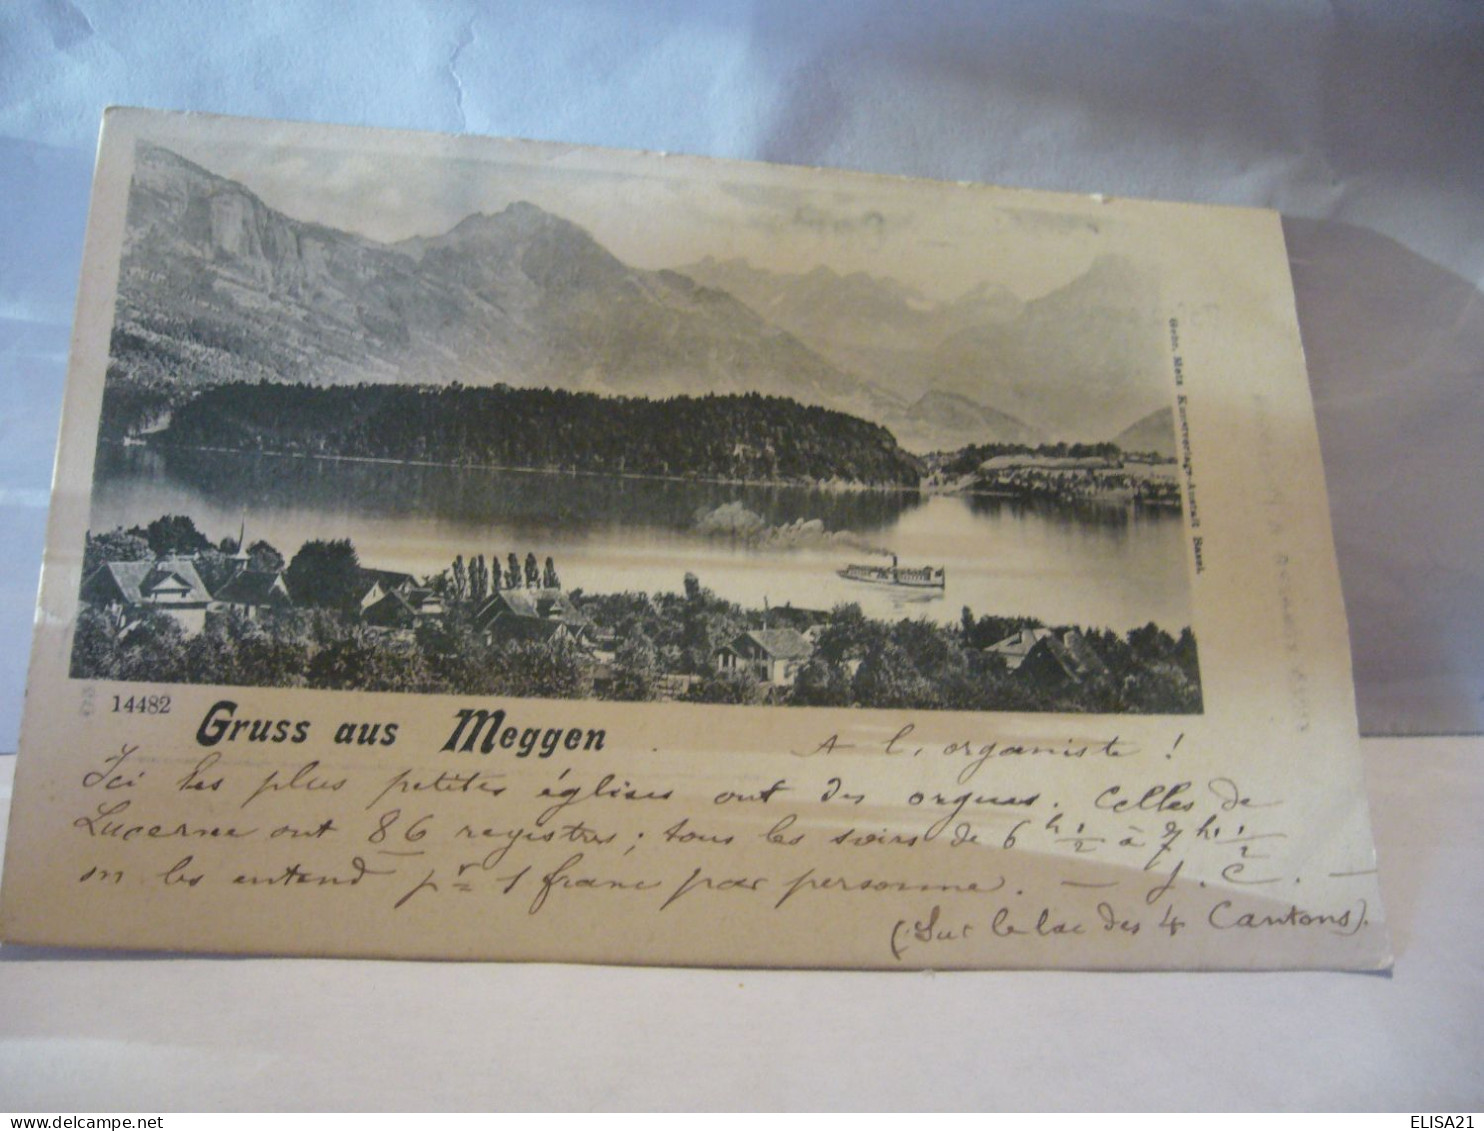 Gebr. Metz Kunstverlags-Anstalt Basel.
14482
Gruss aus Meggen
A l'organiste !
Ici les plus petites églises ont des orgues. Celles de
Lucerne ont 86 registres ; tous les soirs de 6 h 1/2 à 7 h 1/2
on les entend pr 1 franc par personne. — J. C. —
(Sur le lac des 4 Cantons).
ELISA21